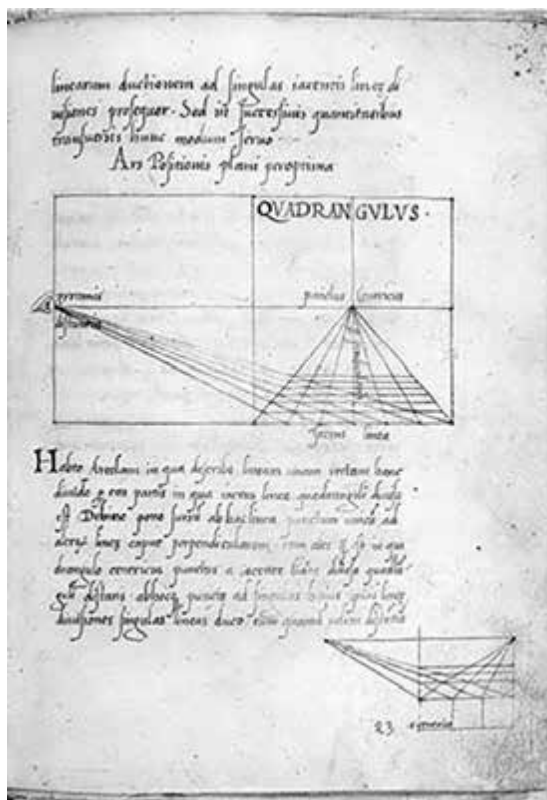 linearum ductionem ad singulas iacentis linee di
uisiones prosequor. Sed in successiuis quantitatibus
transuersis hunc modum seruo
Ars Positionis plani peroptima
QVADRANGVLVS.
punctus centricus
distantia
iacens linea
Habeo Areolam in qua describo lineam unam rectam hanc
diuido eas partes in qua iacens linea quadranguli diuisa
est Dehinc pono sursum ab hac linea punctum unicum ad
alterum linee caput perpendicularem
drangulo centricus punctus a iacente
distans ab hocque puncto ad singulas huius ipsius linee
diuisiones singulas lineas duco tum quantam uelim distantia
23